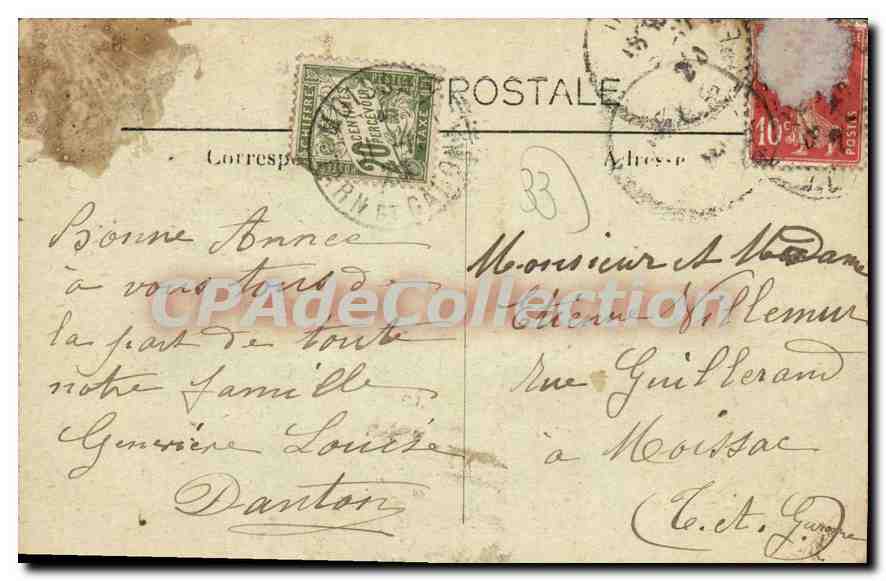 POSTALE
Correspo
Adresse
CHIFFRE
TAXE
20
CENTIMES
A PERCEVOIR
TARN ET GARONNE
10c
POSTES
33
Bonne Année
à vous tous de
la part de toute
notre famille
Geneviève Louise
Danton
Monsieur et Madame
Etienne Villemur
rue Guillerand
à Moissac
(T. et. Garonne)
CPAdeCollection